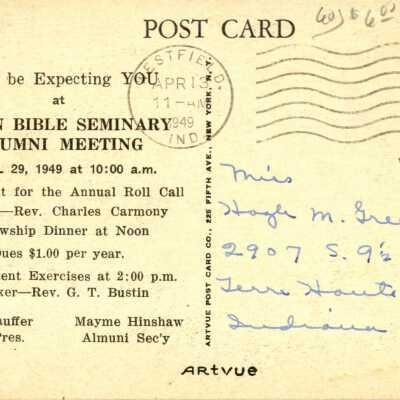 POST CARD
603 to 6.00
be Expecting YOU
at
N BIBLE SEMINARY
UMNI MEETING
L. 29, 1949 at 10:00 a.m.
t for the Annual Roll Call
—Rev. Charles Carmony
wship Dinner at Noon
Dues $1.00 per year.
ent Exercises at 2:00 p.m.
ker—Rev. G. T. Bustin
auffer Mayme Hinshaw
Pres. Almuni Sec'y
WESTFIELD,
APR 13
11-AM
1949
IND.
ARTVUE POST CARD CO., 225 FIFTH AVE., NEW YORK, N. Y.
Miss
Hazle M. Gre
2907 S. 9½
Terre Haute
Indiana
ARTVUE